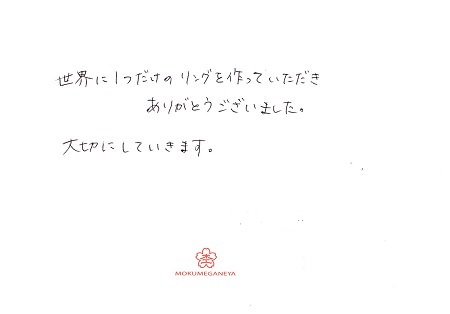 世界に1つだけのリングを作っていただき
ありがとうございました。
大切にしていきます。
MOKUMEGANEYA